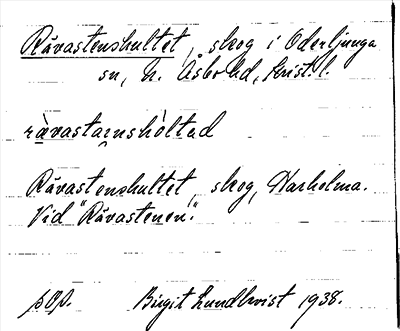 Råvastenshultet, skog i Oderljunga
sn, N. Åsbo hd, Krist. l.
rävastarnshòltad
Råvastenshultet, skog, Harholma.
Vid "Råvastenen".
pop. Birgit Lundkvist 1938.